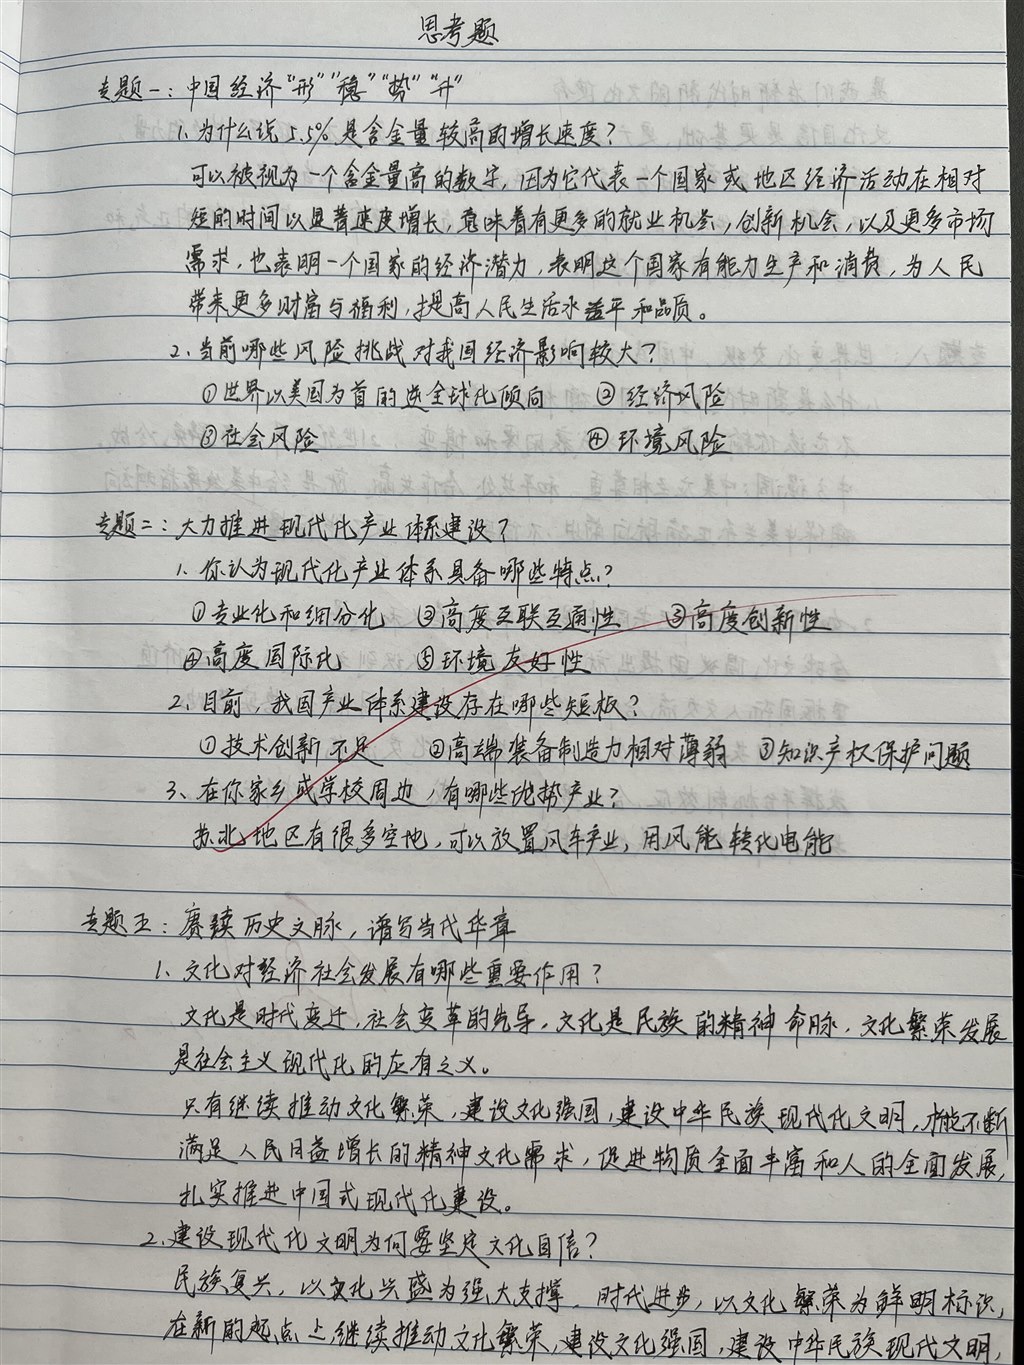 思考题
专题一：中国经济“形”“稳”“势”“升”
1. 为什么说5.5%是含金量较高的增长速度？
可以被视为一个含金量高的数字，因为它代表一个国家或地区经济活动在相对
短的时间以显著速度增长，意味着有更多的就业机会，创新机会，以及更多市场
需求，也表明一个国家的经济潜力，表明这个国家有能力生产和消费，为人民
带来更多财富与福利，提高人民生活水平和品质。
2. 当前哪些风险挑战对我国经济影响较大？
①世界以美国为首的逆全球化倾向 ②经济风险
③社会风险 ④环境风险
专题二：大力推进现代化产业体系建设？
1. 你认为现代化产业体系具备哪些特点？
①专业化和细分化 ②高度互联互通性 ③高度创新性
④高度国际化 ⑤环境友好性
2. 目前，我国产业体系建设存在哪些短板？
①技术创新不足 ②高端装备制造力相对薄弱 ③知识产权保护问题
3、在你家乡或学校周边，有哪些优势产业？
苏北地区有很多空地，可以放置风车产业，用风能转化电能
专题五：赓续历史文脉，谱写当代华章
1、文化对经济社会发展有哪些重要作用？
文化是时代变迁，社会变革的先导，文化是民族的精神命脉，文化繁荣发展
是社会主义现代化的应有之义。
只有继续推动文化繁荣，建设文化强国，建设中华民族现代化文明，才能不断
满足人民日益增长的精神文化需求，促进物质全面丰富和人的全面发展，
扎实推进中国式现代化建设。
2. 建设现代化文明为何要坚定文化自信？
民族复兴，以文化兴盛为强大支撑，时代进步，以文化繁荣为鲜明标识，
在新的起点上继续推动文化繁荣，建设文化强国，建设中华民族现代文明，